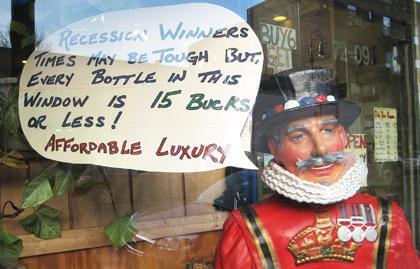 RECESSION WINNERS
TIMES MAY BE TOUGH BUT,
EVERY BOTTLE IN THIS
WINDOW IS 15 BUCKS
OR LESS!
AFFORDABLE LUXURY
BUY 6
GET
72-09
OPEN